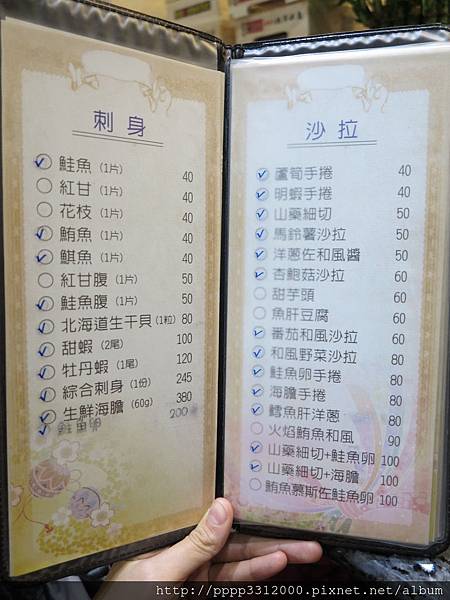 刺身
鮭魚 (1片) 40
紅甘 (1片) 40
花枝 (1片) 40
鮪魚 (1片) 40
鯕魚 (1片) 40
紅甘腹 (1片) 50
鮭魚腹 (1片) 50
北海道生干貝 (1粒) 80
甜蝦 (2尾) 100
牡丹蝦 (1尾) 120
綜合刺身 (1份) 245
生鮮海膽 (60g) 380
鮭魚卵 200
沙拉
蘆筍手捲 40
明蝦手捲 40
山藥細切 50
馬鈴薯沙拉 50
洋蔥佐和風醬 50
杏鮑菇沙拉 60
甜芋頭 60
魚肝豆腐 60
番茄和風沙拉 60
和風野菜沙拉 80
鮭魚卵手捲 80
海膽手捲 80
鱈魚肝洋蔥 80
火焰鮪魚和風 90
山藥細切+鮭魚卵 100
山藥細切+海膽 100
鮪魚慕斯佐鮭魚卵 100
http://pppp3312000.pixnet.net/album